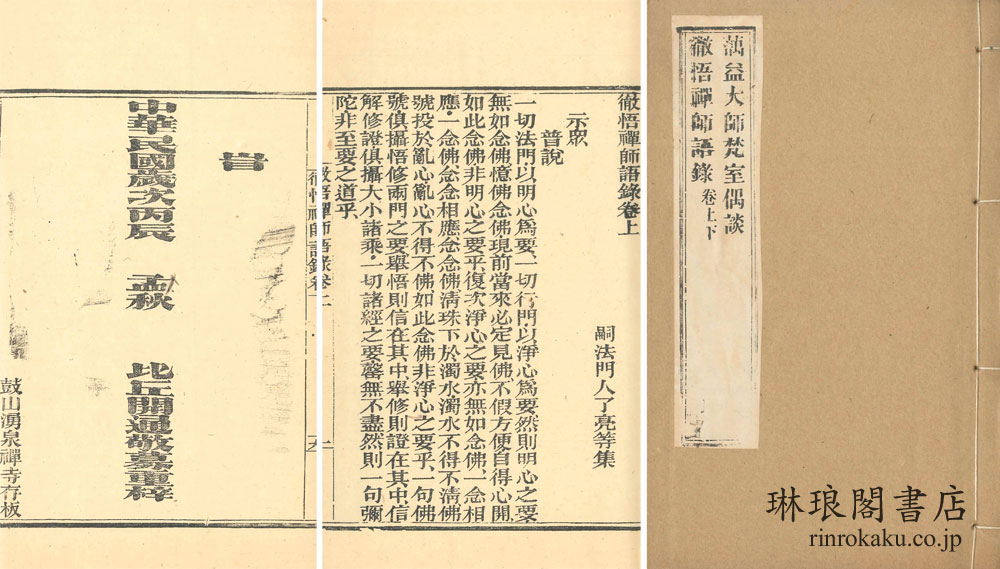 蕅益大師梵室偶談
徹悟禪師語錄 卷上下
徹悟禪師語錄卷上
嗣法門人了亮等集
示眾
普說
一切法門、以明心爲要、一切行門、以淨心爲要、然則明心之要、
無如念佛、憶佛念佛、現前當來、必定見佛、不假方便、自得心開、
如此念佛、非明心之要乎、復次淨心之要、亦無如念佛、一念相
應、一念佛、念念相應、念念佛、清珠下於濁水、濁水不得不清、佛
號投於亂心、亂心不得不佛、如此念佛、非淨心之要乎、一句佛
號、俱攝悟修兩門之要、舉悟則信在其中、舉修則證在其中、信
解修證、俱攝大小諸乘、一切諸經之要、罄無不盡、然則一句彌
陀、非至要之道乎、
徹悟禪師語錄卷上
旹
中華民國歲次丙辰 孟秋 比丘開通敬募重梓
鼓山湧泉禪寺存板
琳琅閣書店
rinrokaku.co.jp